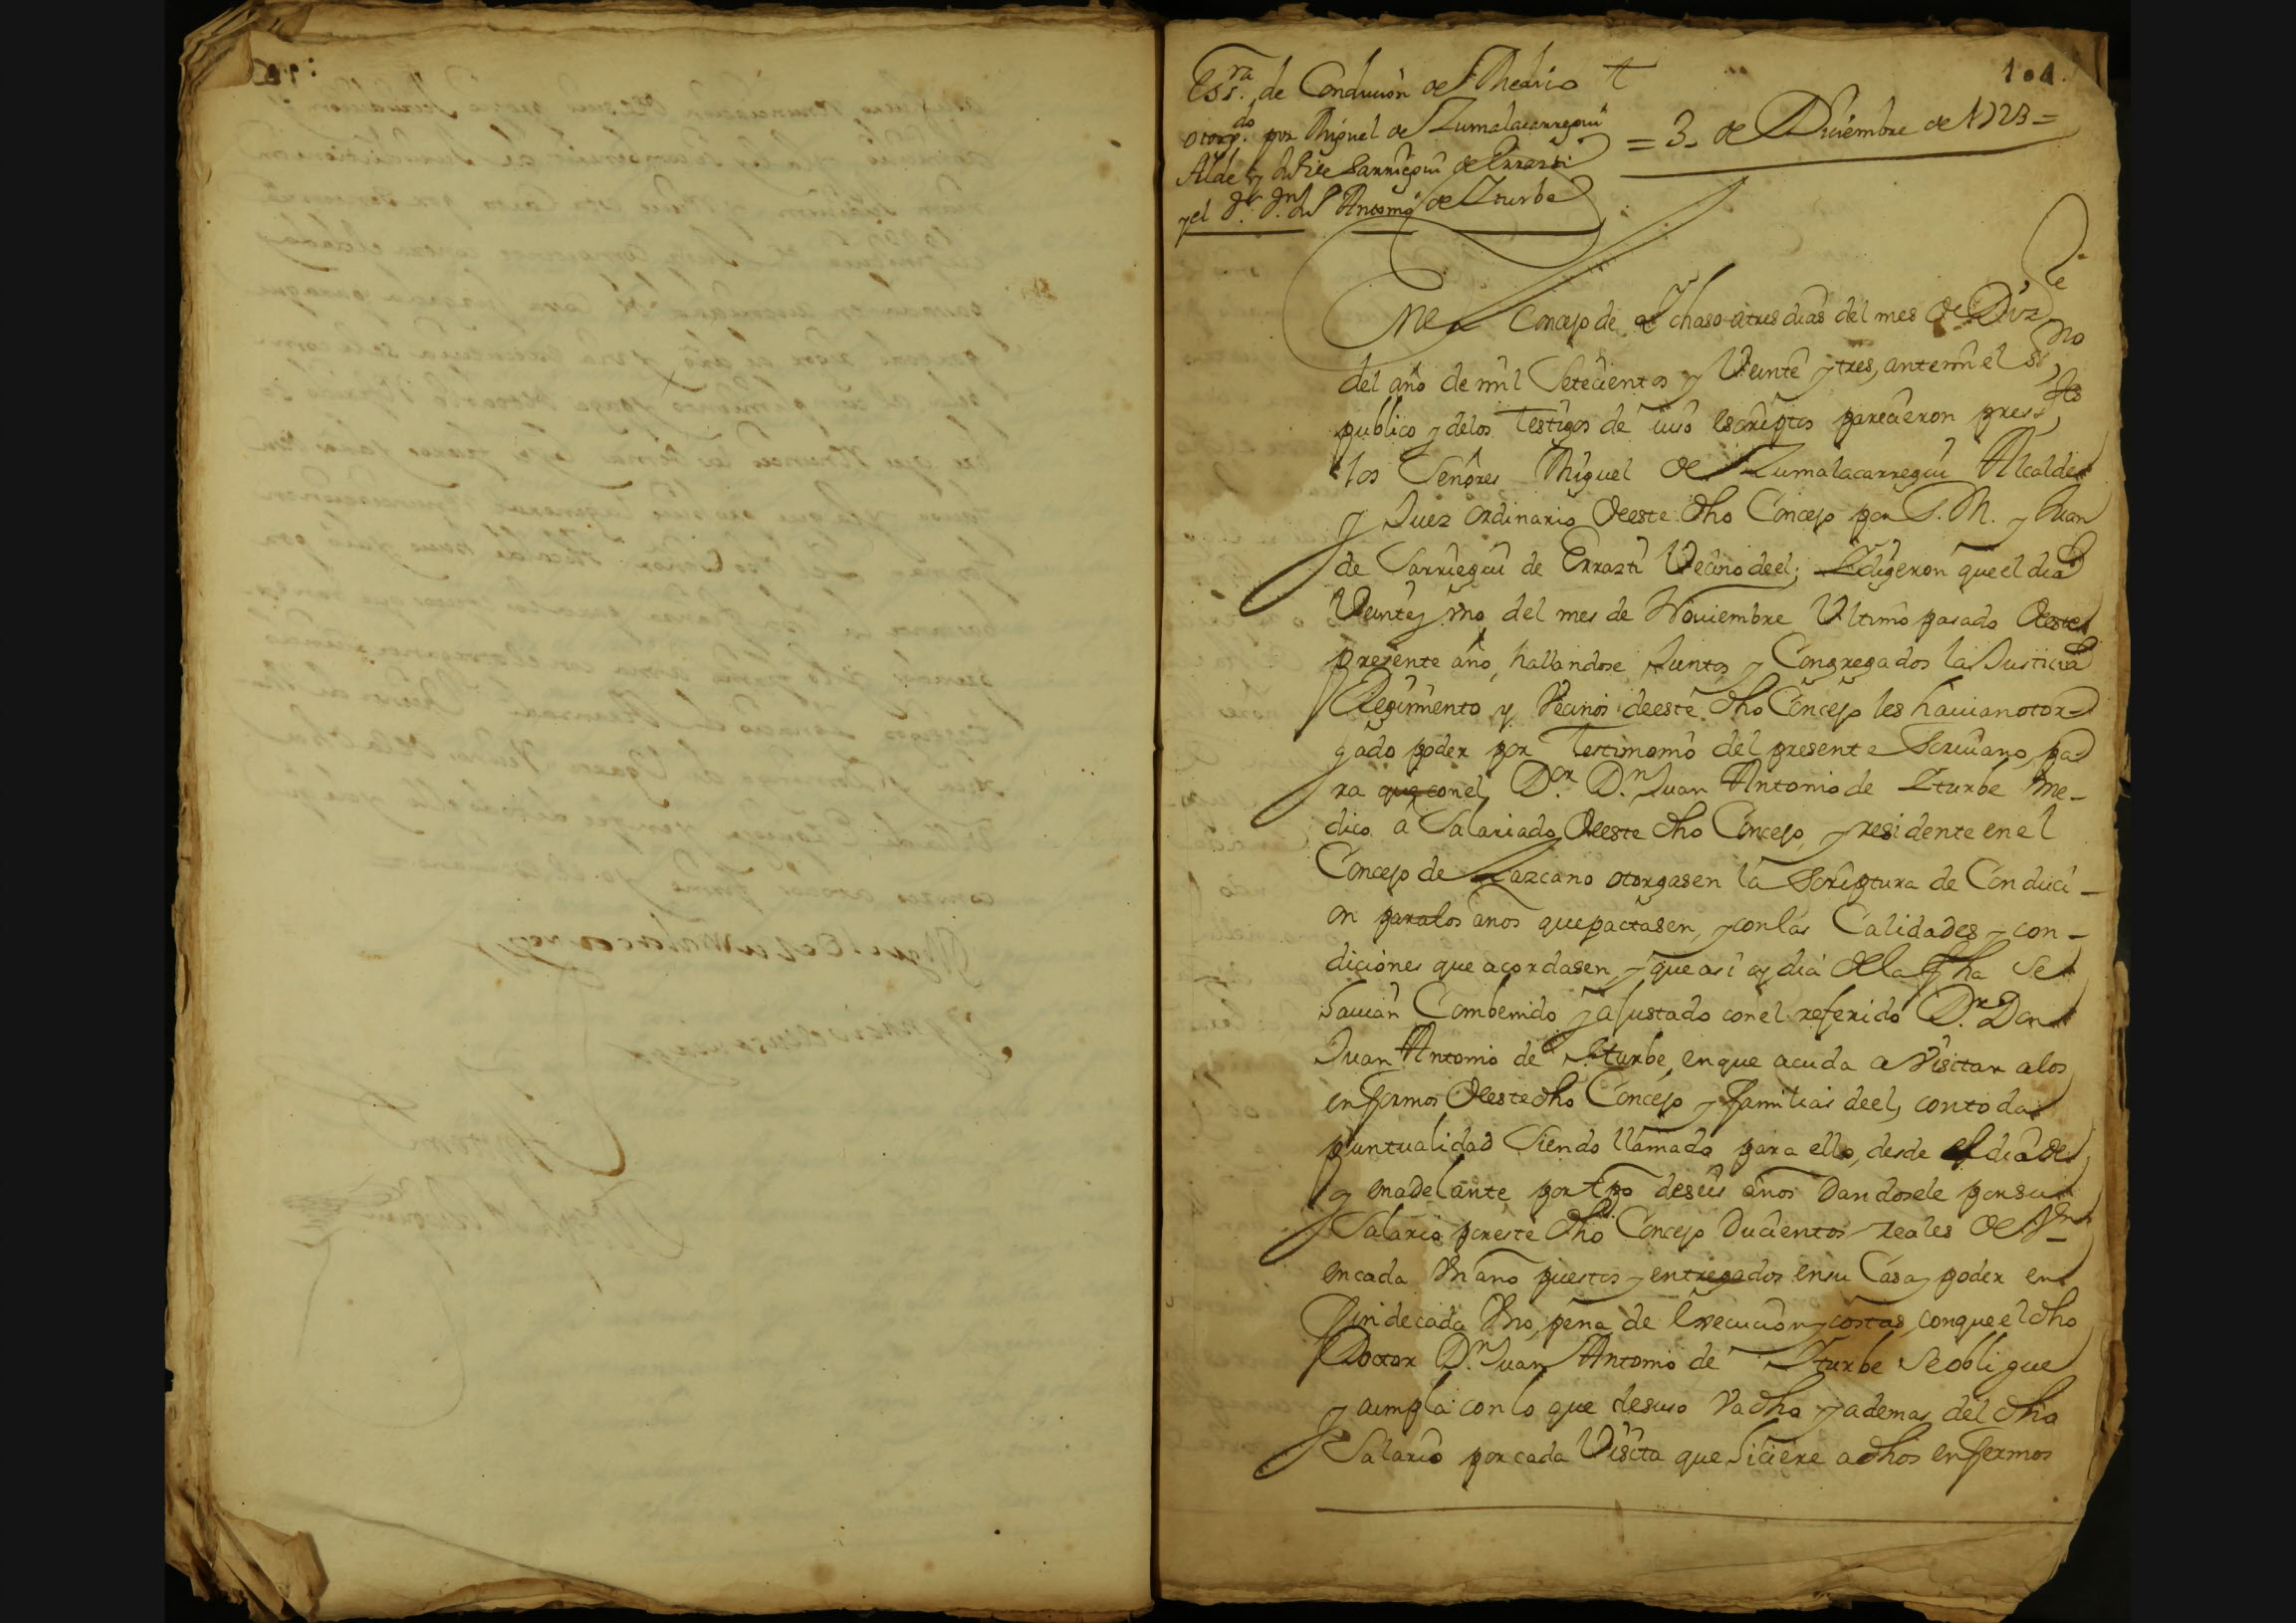 101
Essra. de Conducion de Medico
otorgdo. por Miguel de Zumalacarregui
Alde y Jn. de Sarriegui de Errazti
y el Dr. Dn. Jn. Antonio de Yturbe
= 3. de Diciembre de 1723 =
En el Concejo de Ichaso a tres dias del mes de Dizre
del año de mil Setecientos y Veinte y tres, ante mi el ssno
publico y de los Testigos de iuso escriptos parecieron presstes
los Señores Miguel de Zumalacarregui Alcalde
y Juez ordinario de este dho Concejo por S. M. y Juan
de Sarriegui de Errazti Vecino de el; Y digeron que el dia
Veinte y vno del mes de Nouiembre Vltimo pasado de este
presente año, hallandose Juntos y Congregados la Justicia
Regimiento y Vecinos de este dho Concejo les hauian otor-
gado poder por Testimonio del presente Scriuano, pa
ra que con el Dor. Dn. Juan Antonio de Yturbe Me-
dico a Salariado de este dho Concejo, y residente en el
Concejo de Lazcano otorgasen la Scriptura de Conduci-
on para los años que pactasen, y con las Calidades y con-
diciones que acordasen, y que asi oy dia de la fha Se
hauian Combenido y ajustado con el referido Dr. Don
Juan Antonio de Yturbe, en que acuda a Visitar a los
enfermos de este dho Concejo y familias de el, con toda
puntualidad Siendo llamado para ello, desde el dia de
oy en adelante por tpo de seis años Dandosele por su
Salario por este dho Concejo Ducientos reales de Vn
en cada Vn año puestos y entregados en su Casa y poder en
fin de cada Vno, pena de execucion y costas, con que el dho
Doctor Dn. Juan Antonio de Yturbe Se obligue
y cumpla con lo que desuso Va dho y ademas del dho
Salario por cada Visita que hiciere a dhos enfermos